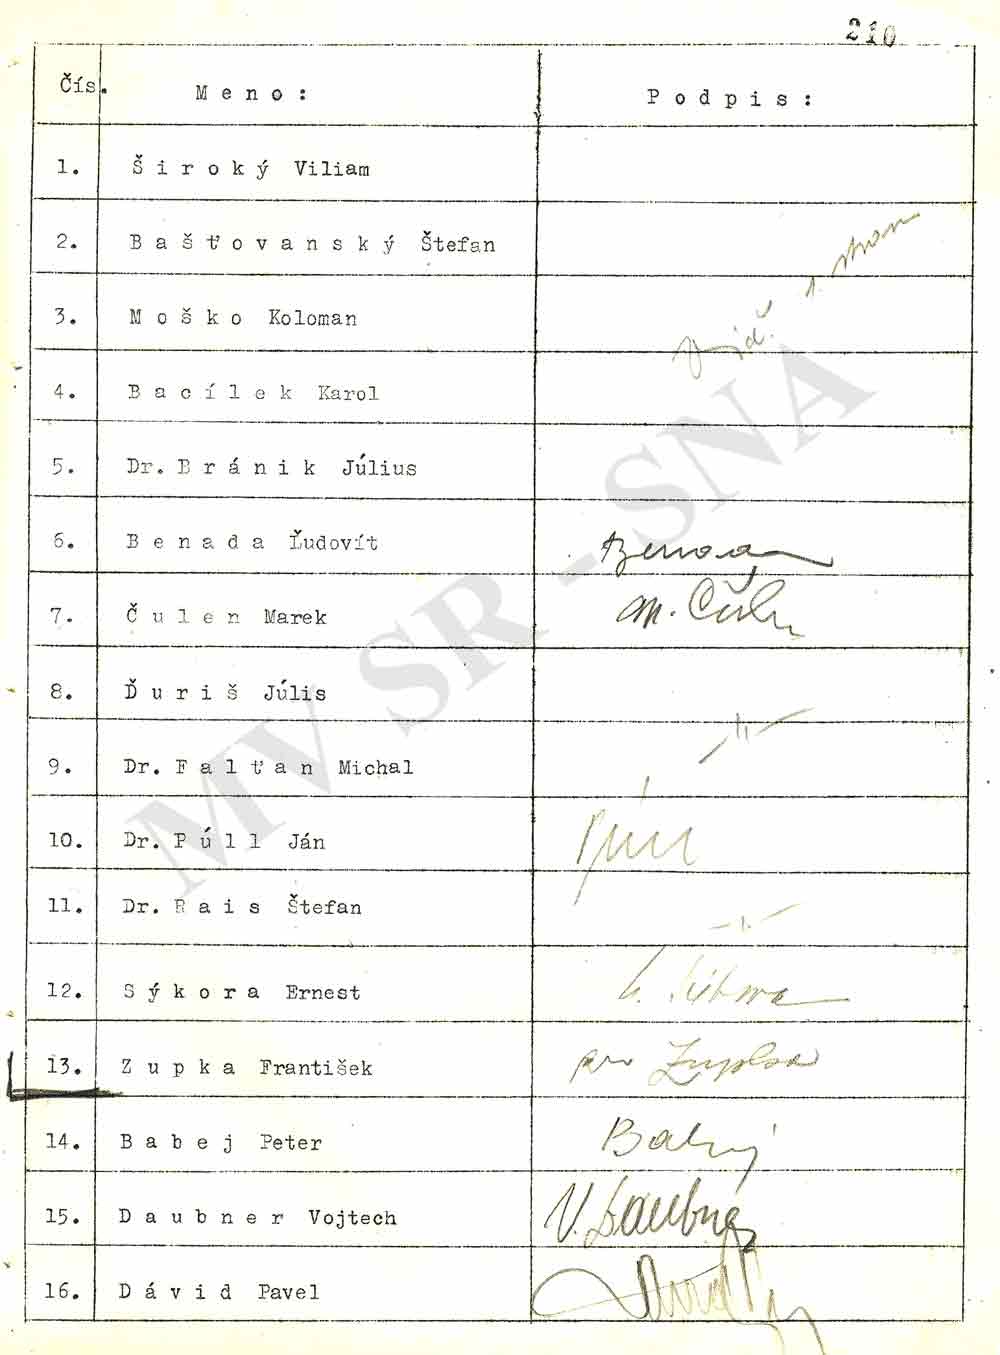 210
Čís. M e n o : P o d p i s :
1. Š i r o k ý Viliam
2. B a š ť o v a n s k ý Štefan
3. M o š k o Koloman
viď. 1. stran
4. B a c í l e k Karol
5. Dr. B r á n i k Július
6. B e n a d a Ľudovít Benada
7. Č u l e n Marek M. Čulen
8. Ď u r i š Júlis
9. Dr. F a l ť a n Michal
10. Dr. P ú l l Ján Púll
11. Dr. R a i s Štefan
12. S ý k o r a Ernest
13. Z u p k a František Zupka
14. B a b e j Peter Babej
15. D a u b n e r Vojtech V. Daubner
16. D á v i d Pavel
MV SR - SNA